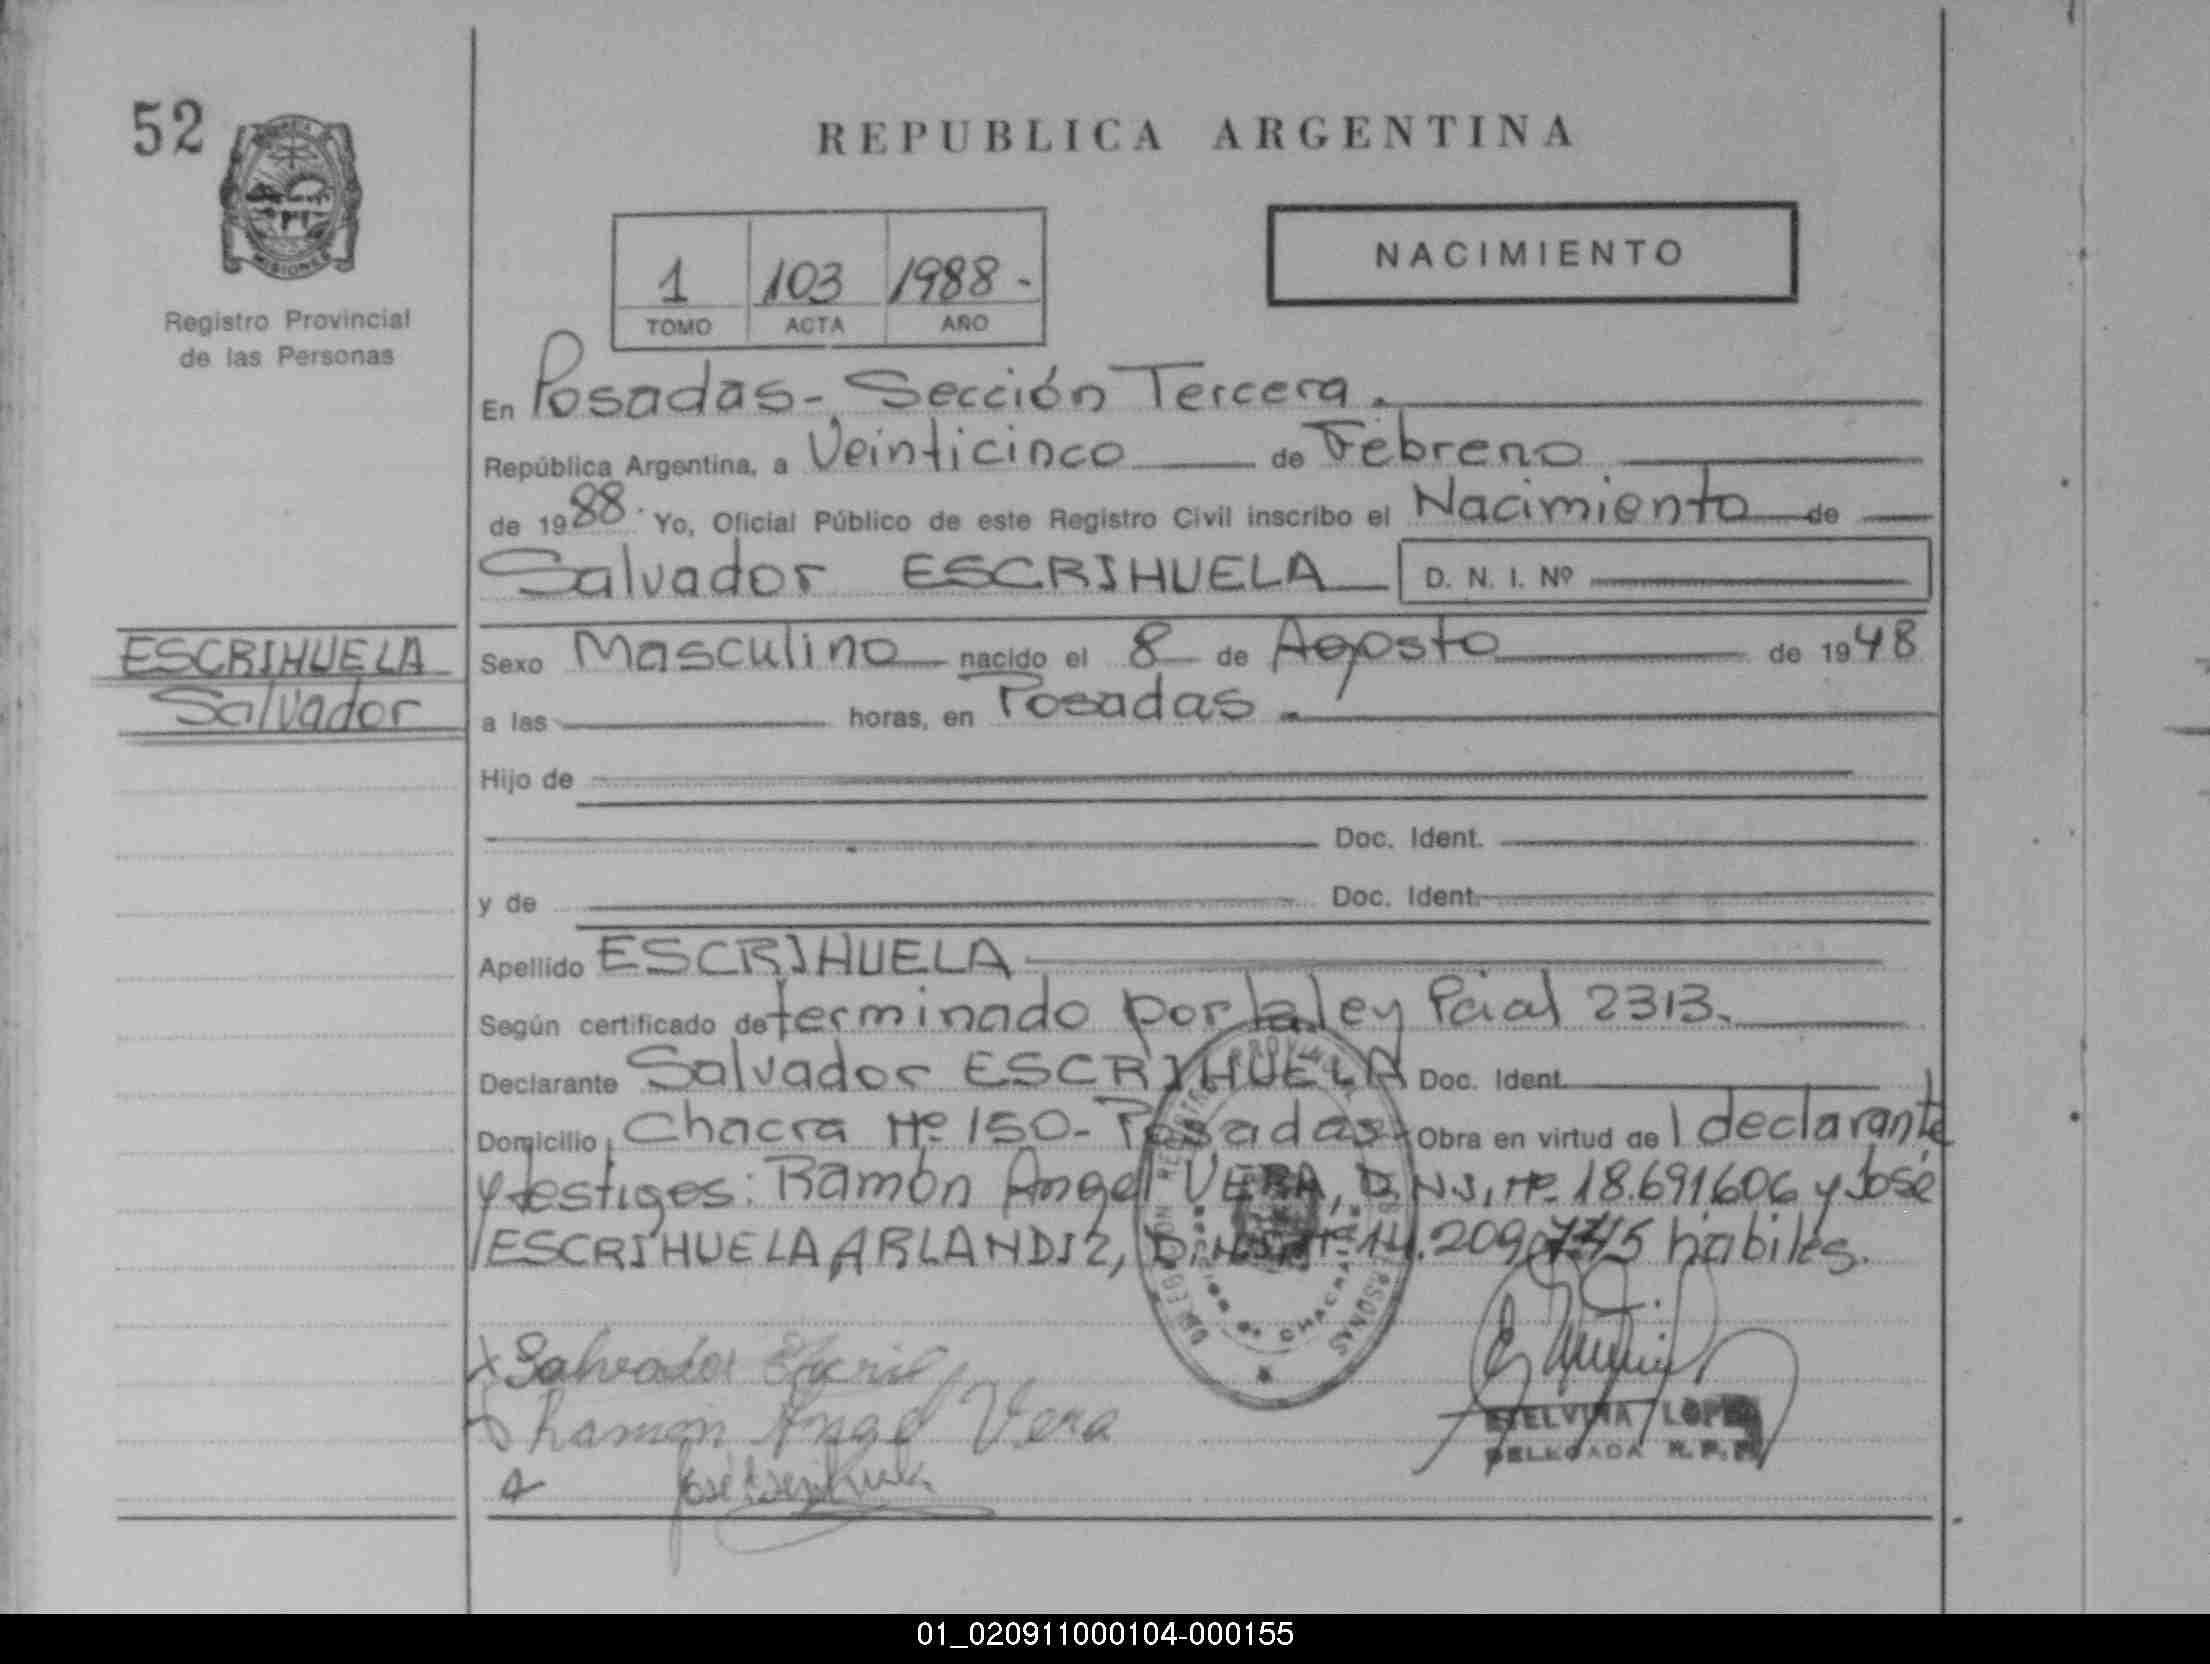 52
REPUBLICA ARGENTINA
MISIONES
Registro Provincial
de las Personas
NACIMIENTO
1 103 1988.-
TOMO ACTA AÑO
En Posadas-Sección Tercera.
República Argentina, a Veinticinco de Febrero
de 1988. Yo, Oficial Público de este Registro Civil inscribo el Nacimiento de
Salvador ESCRIHUELA D. N. I. Nº
ESCRIHUELA
Salvador
Sexo Masculino nacido el 8 de Agosto de 1948
a las horas, en Posadas.
Hijo de
Doc. Ident.
y de Doc. Ident.
Apellido ESCRIHUELA
Según certificado determinado por la ley Pcial 2313.
Declarante Salvador ESCRIHUELA Doc. Ident.
Domicilio Chacra Nº 150-Posadas- Obra en virtud de l declarante
y testigos: Ramón Angel VERA, D.N.I. Nº 18.691.606 y José
ESCRIHUELA ARLANDIZ, D.N.I. Nº 14.209. habiles.
Salvador
Ramon Angel Vera
José Escrihuela
ETELVINA LOPEZ
DELEGADA R. P. P.
01_020911000104-000155